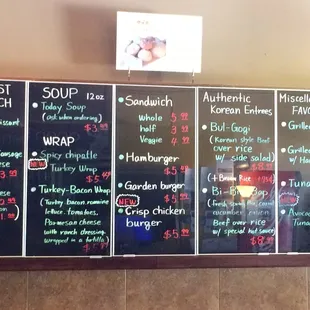 ST
CH
issant
Sausage
cheese
SOUP 12oz
Today Soup
(Ask when ordering)
$3.99
WRAP
Spicy chipotle
NEW Turkey Wrap
Turkey-Bacon Wrap
(Turkey bacon romaine
lettuce, tomatoes,
Parmesan cheese
with ranch dressing
wrapped in a tortilla)
Sandwich
Whole 5.99
half 3.99
Veggie 4.99
Hamburger
Garden burger
NEW
Crisp chicken
burger
Authentic
Korean Entrees
Bul-Gogi
(Korean style Beef
over rice
w/ side salad
(+ Brown Rice
Bi-Bim-Bap
Beef over rice
w/ special hot sauce)
Miscella
FAVO
Grille
Grille
w/ Ha
Tuna
Avoca
Tuna